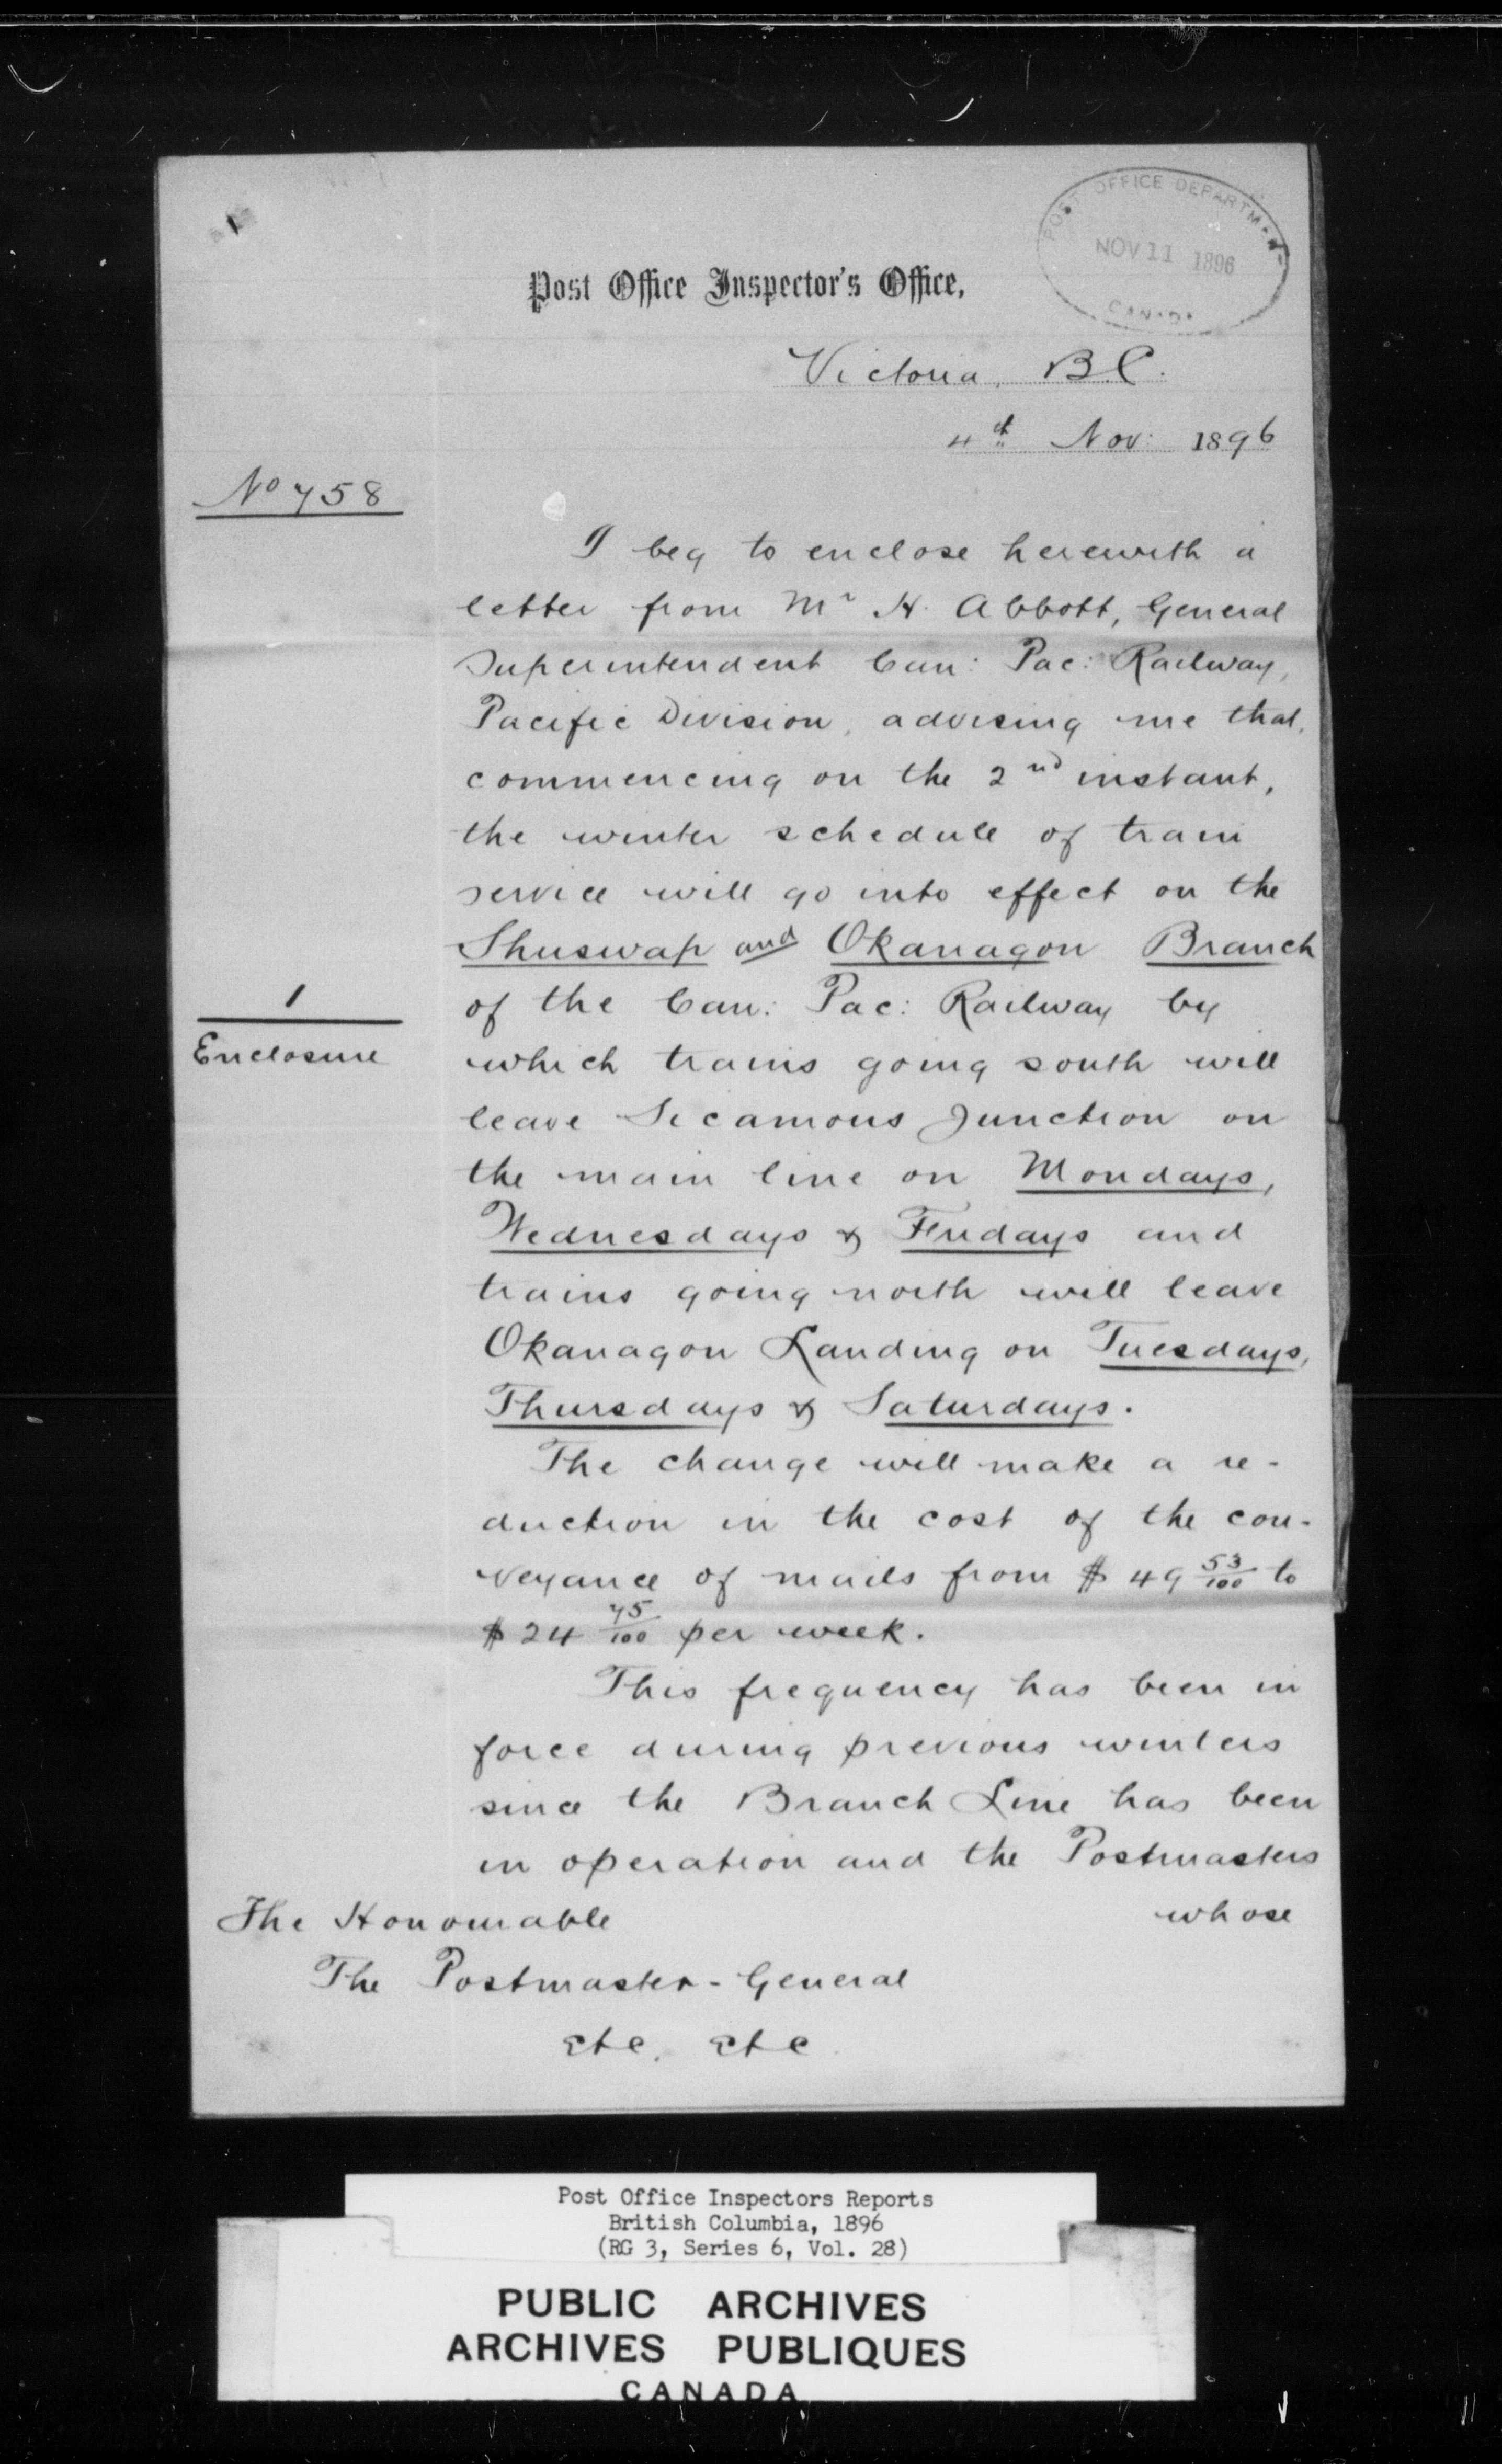 POST OFFICE DEPARTMENT
NOV 11 1896
CANADA
Post Office Inspector's Office,
Victoria, B.C.
4th Nov: 1896
No 758
I beg to enclose herewith a
letter from Mr H. Abbott, General
Superintendent Can: Pac: Railway,
Pacific Division, advising me that,
commencing on the 2nd instant,
the winter schedule of train
service will go into effect on the
Shuswap and Okanagon Branch
of the Can: Pac: Railway by
1
Enclosure
which trains going south will
leave Sicamous Junction on
the main line on Mondays,
Wednesdays & Fridays and
trains going north will leave
Okanagon Landing on Tuesdays,
Thursdays & Saturdays.
The change will make a re-
duction in the cost of the con-
veyance of mails from $ 49 53/100 to
$ 24 75/100 per week.
This frequency has been in
force during previous winters
since the Branch Line has been
in operation and the Postmasters
whose
The Honourable
The Postmaster-General
etc, etc
Post Office Inspectors Reports
British Columbia, 1896
(RG 3, Series 6, Vol. 28)
PUBLIC ARCHIVES
ARCHIVES PUBLIQUES
CANADA